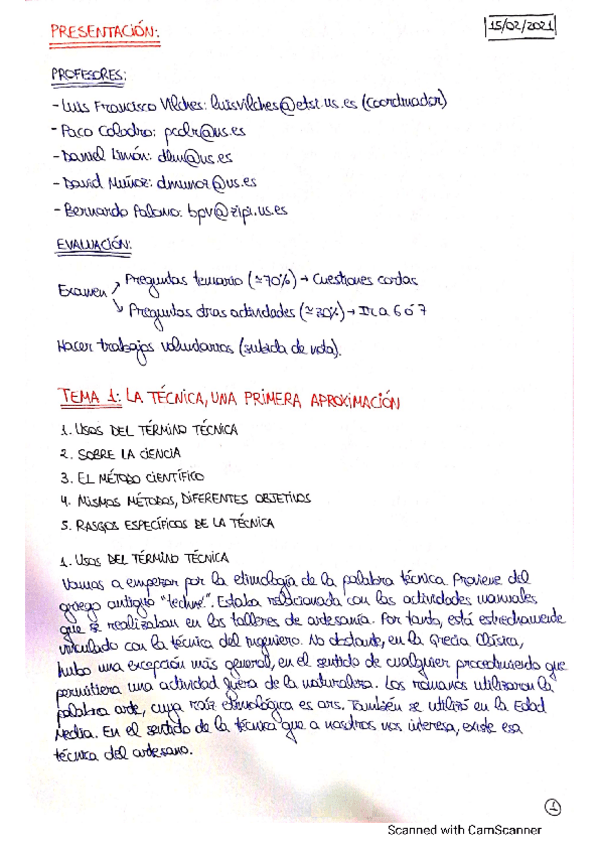 PRESENTACIÓN:
15/02/2021
PROFESORES:
- Luis Francisco Vilches: luisvilches@etsi.us.es (Coordinador)
- Paco Colodro: pcdr@us.es
- Daniel Limón: dlm@us.es
- David Muñoz: dmunoz@us.es
- Bernardo Palomo: bpv@zipi.us.es
EVALUACIÓN:
Examen
Preguntas temario (≃70%) → Cuestiones cortas
Preguntas otras actividades (≃30%) → Ir a 6 ó 7
Hacer trabajos voluntarios (subida de nota).
TEMA 1: LA TÉCNICA, UNA PRIMERA APROXIMACIÓN
1. USOS DEL TÉRMINO TÉCNICA
2. SOBRE LA CIENCIA
3. EL MÉTODO CIENTÍFICO
4. MISMOS MÉTODOS, DIFERENTES OBJETIVOS
5. RASGOS ESPECÍFICOS DE LA TÉCNICA
1. USOS DEL TÉRMINO TÉCNICA
Vamos a empezar por la etimología de la palabra técnica. Proviene del
griego antiguo "techné". Estaba relacionada con las actividades manuales
que se realizaban en los talleres de artesanía. Por tanto, está estrechamente
vinculado con la técnica del ingeniero. No obstante, en la Grecia Clásica,
hubo una excepción más general, en el sentido de cualquier procedimiento que
permitiera una actividad fuera de la naturaleza. Los romanos utilizaron la
palabra arte, cuya raíz etimológica es ars. También se utilizó en la Edad
Media. En el sentido de la técnica que a nosotros nos interesa, existe esa
técnica del artesano.
1
Scanned with CamScanner